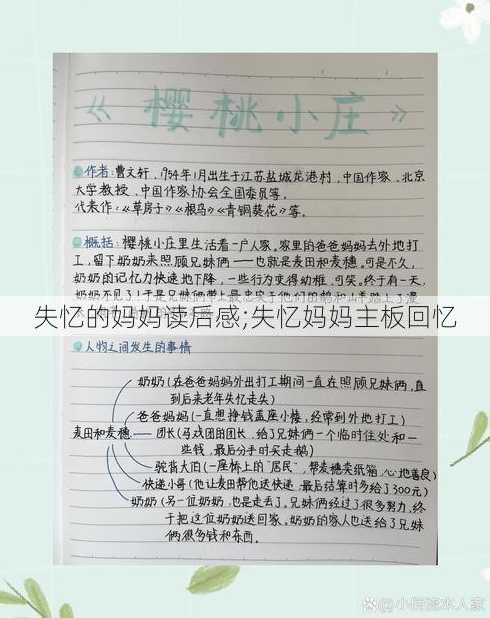 《樱桃小庄》
作者:曹文轩,1954年1月出生于江苏盐城龙港村,中国作家、北京
大学教授、中国作家协会全国委员等。
代表作:《草房子》《根鸟》《青铜葵花》等。
概括:樱桃小庄里生活着一户人家。家里的爸爸妈妈去外地打
工,留下奶奶来照顾兄妹俩——也就是麦田和麦穗。可是不久,
奶奶的记忆力快速地下降,一些行为变得幼稚、可笑。终于有一天,
奶奶不见了!于是兄妹俩带上
失忆的妈妈读后感;失忆妈妈主板回忆
人物之间发生的事情
奶奶(在爸爸妈妈外出打工期间一直在照顾兄妹俩,直
到后来老年失忆走失)
爸爸妈妈(一直想挣钱盖座小楼,经常到外地打工)
麦田和麦穗——团长(马戏团的团长,给了兄妹俩一个临时住处和一
些钱,最后分手时买走鹅)
驼背大伯(一座桥上的"居民",帮麦穗卖纸箱,心地善良)
快递小哥(他让麦田帮他送快递,最后结算时多给了300元)
奶奶(另一位奶奶,也是走丢了。兄妹俩经过了很多努力,终
于把这位奶奶送回家。奶奶的家人也送给了兄妹
俩很多钱和东西。
小桥流水人家